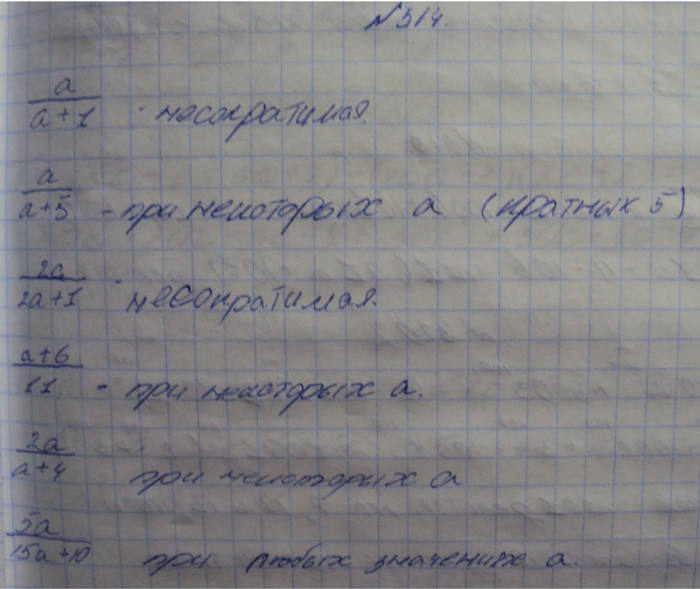 №314.
a/(a+1) - несократимая.
a/(a+5) - при некоторых a (кратных 5)
2a/(2a+1) - несократимая.
(a+6)/11 - при некоторых a.
2a/(a+4) при некоторых a
5a/(15a+10) при любых значениях a.